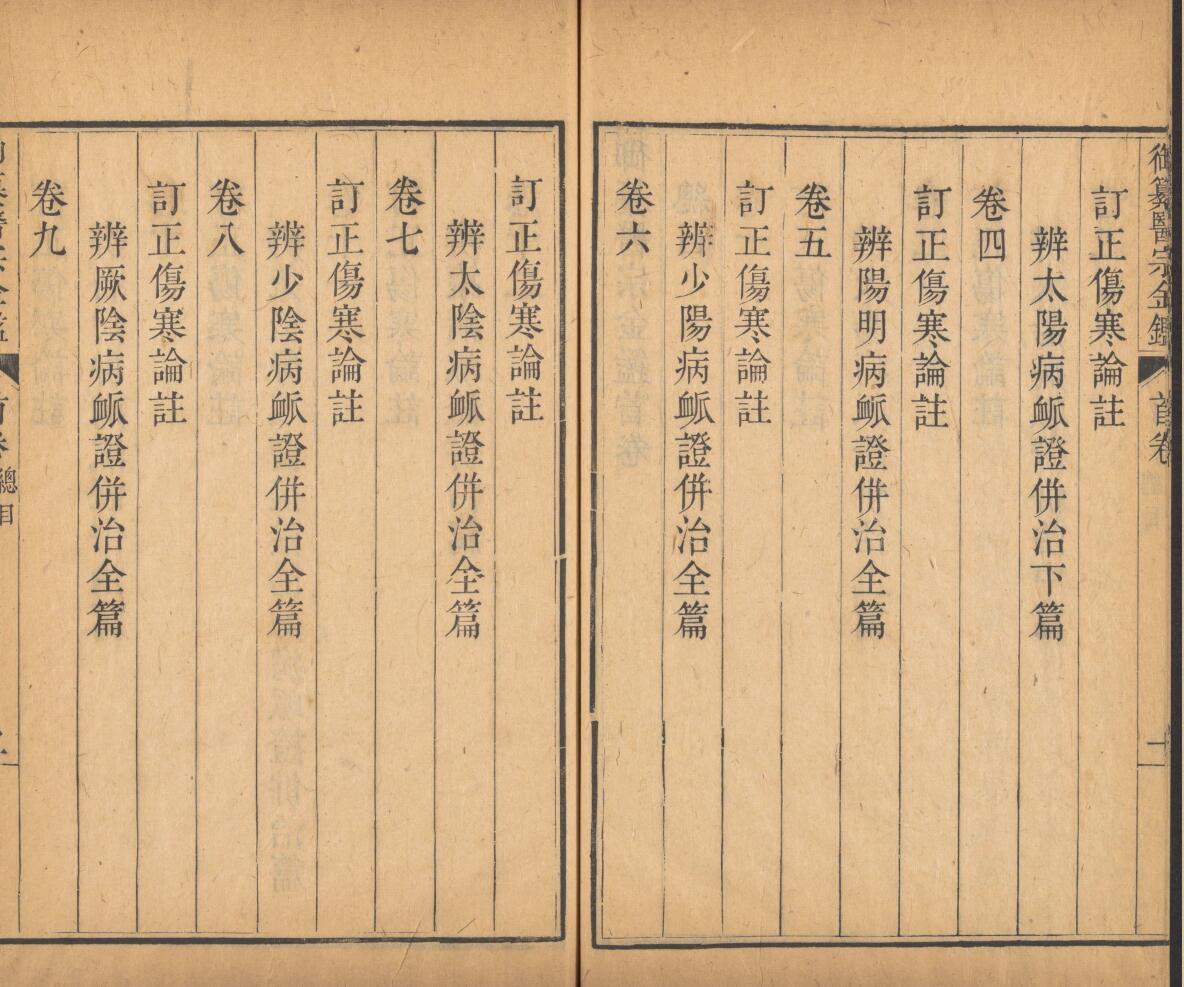 御纂醫宗金鑑 首卷
訂正傷寒論註
辨太陽病脈證併治下篇
卷四
訂正傷寒論註
辨陽明病脈證併治全篇
卷五
訂正傷寒論註
辨少陽病脈證併治全篇
卷六
訂正傷寒論註
辨太陰病脈證併治全篇
卷七
訂正傷寒論註
辨少陰病脈證併治全篇
卷八
訂正傷寒論註
辨厥陰病脈證併治全篇
卷九
總目